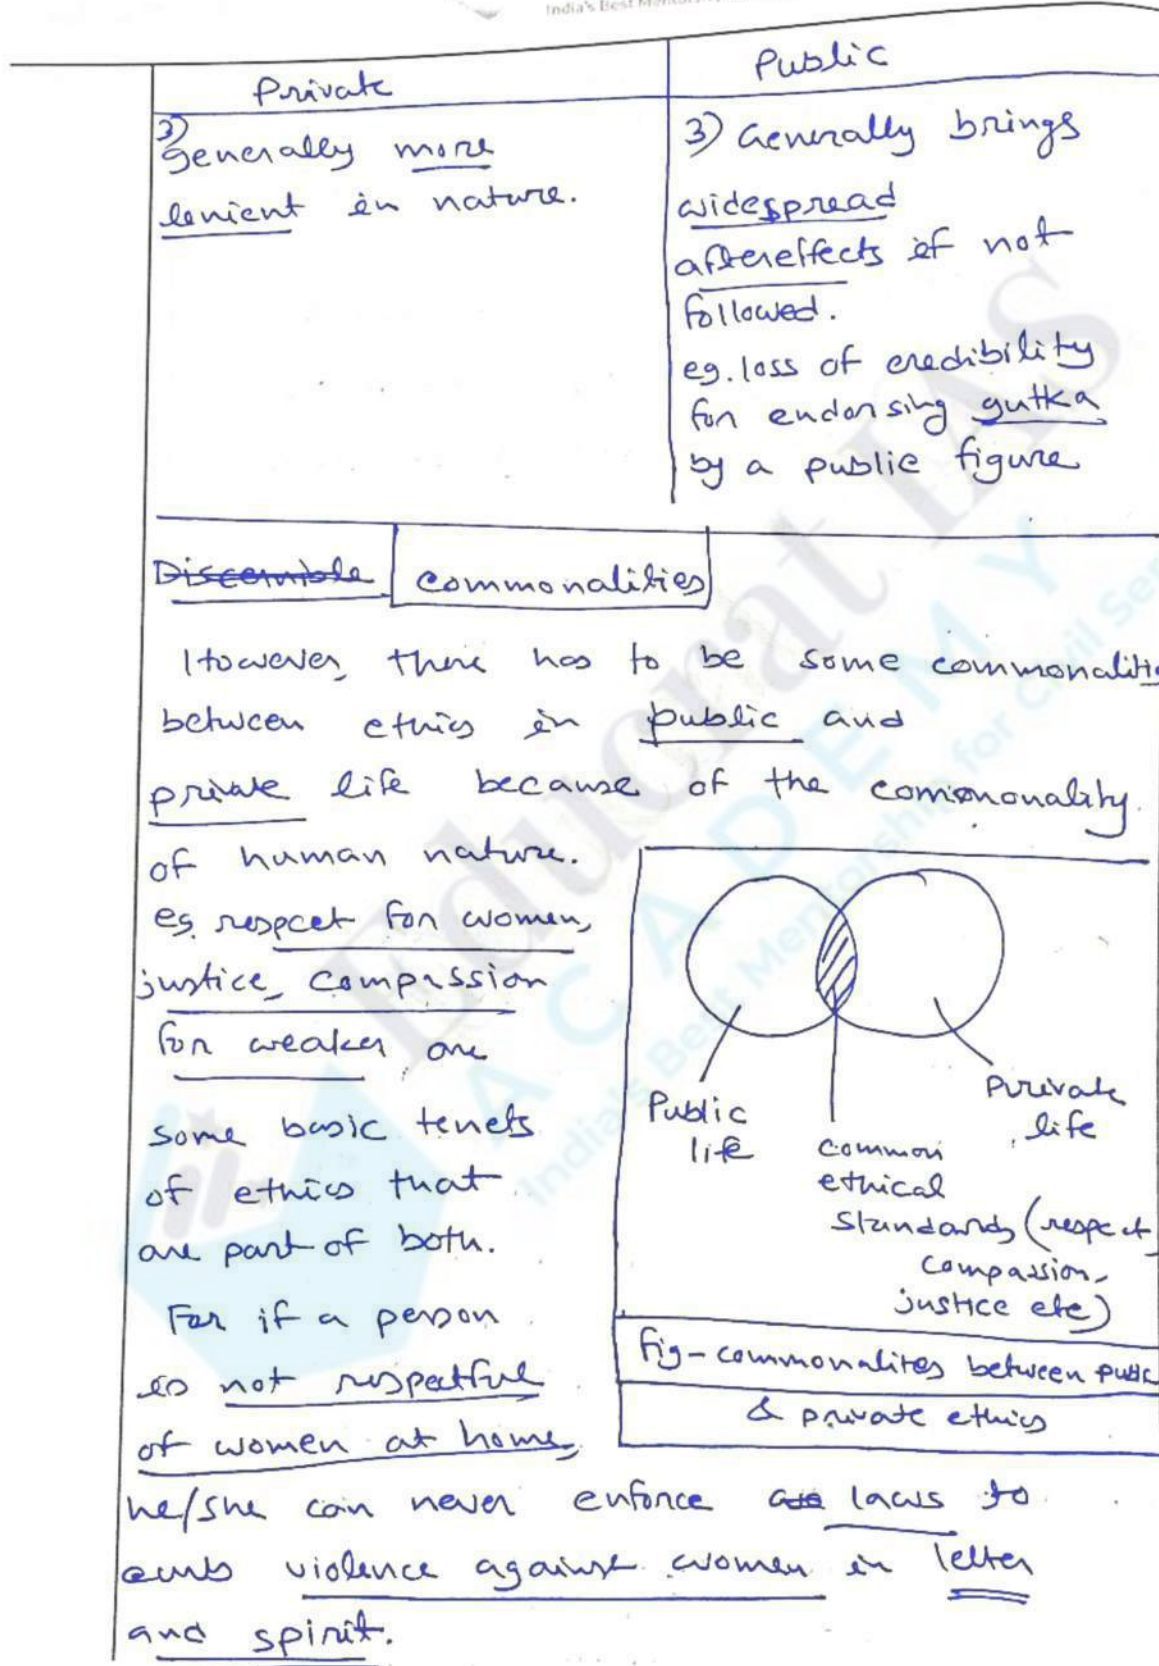 India's Best Mentorship
Private
Public
3) Generally more
lenient in nature.
3) Generally brings
widespread
aftereffects if not
followed.
eg. loss of credibility
for endorsing gutka
by a public figure
Discernible commonalities
However, there has to be some commonalitie
between ethics in public and
private life because of the commonality
of human nature.
eg. respect for women,
justice, compassion
for weaker are
some basic tenets
of ethics that
are part of both.
For if a person
is not respectful
of women at home,
he/she can never enforce laws to
curb violence against women in letter
and spirit.
Public
life
common
ethical
standards (respect,
compassion,
justice etc)
Private
life
fig-commonalites between public
& private ethics
Educrat IAS
ACADEMY
India's Best Mentorship for Civil Ser